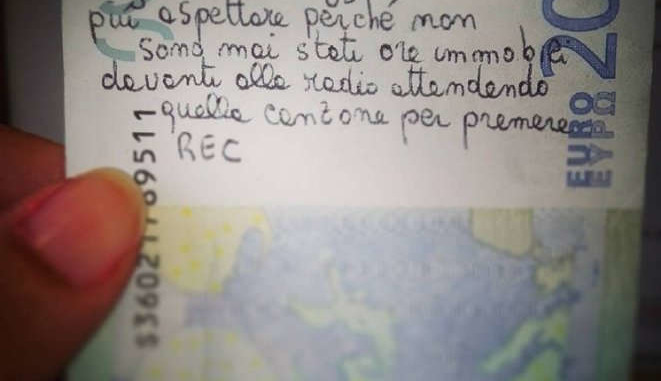 più aspettare perchè non
sono mai stati ore immobili
davanti alla radio attendendo
quella canzone per premere
REC
20
EURO
ΕΥΡΩ